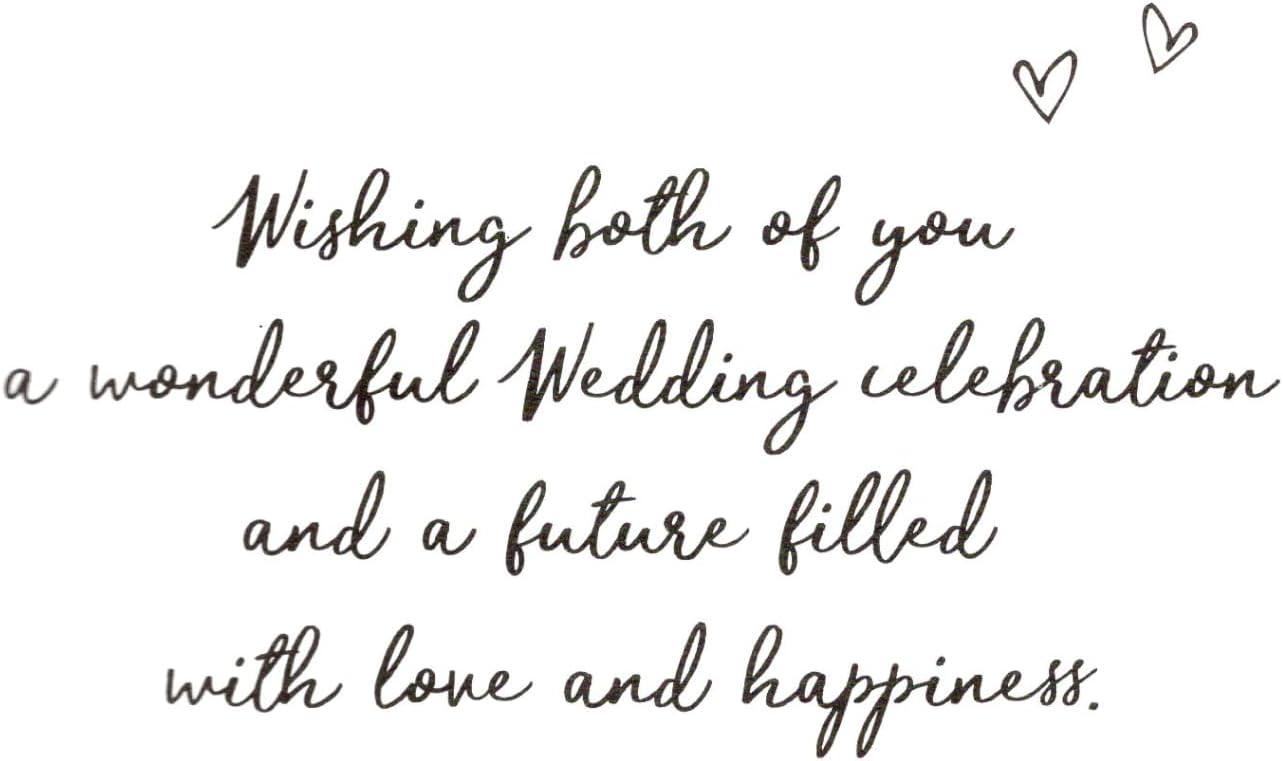 Wishing both of you
a wonderful Wedding celebration
and a future filled
with love and happiness.